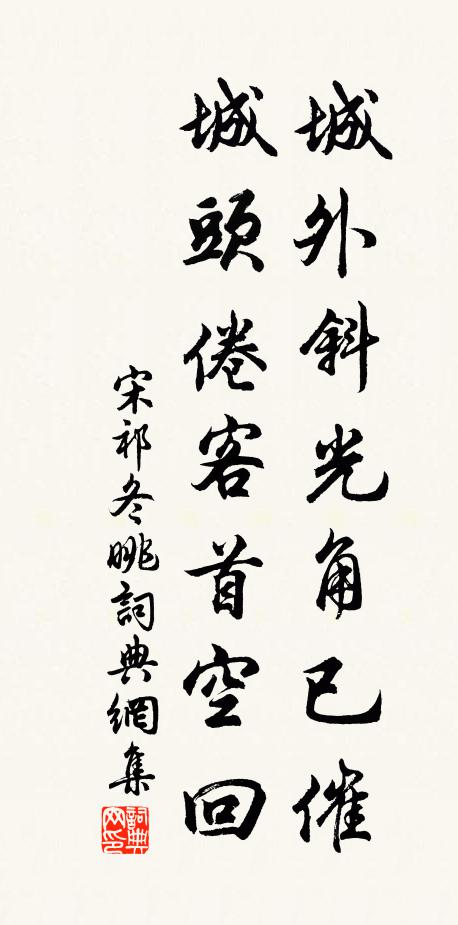 城外斜光角已催
城頭倦客首空回
宋祁冬眺詞典網集
詞典网印